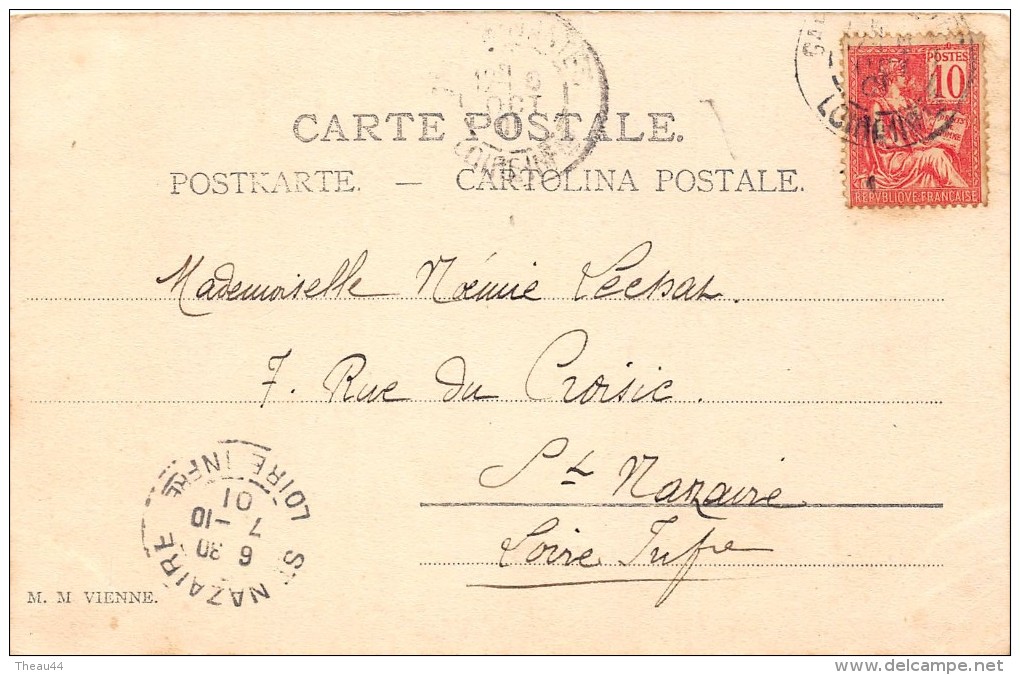 CARTE POSTALE.
POSTKARTE. — CARTOLINA POSTALE.
POSTES
10
REPVBLIQVE FRANÇAISE
Mademoiselle Noémie Lechat.
7. Rue du Croisic.
St Nazaire
Loire Infre
ST NAZAIRE
LOIRE INFRE
6 30
7 -10
01
M. M VIENNE.
Theau44
www.delcampe.net